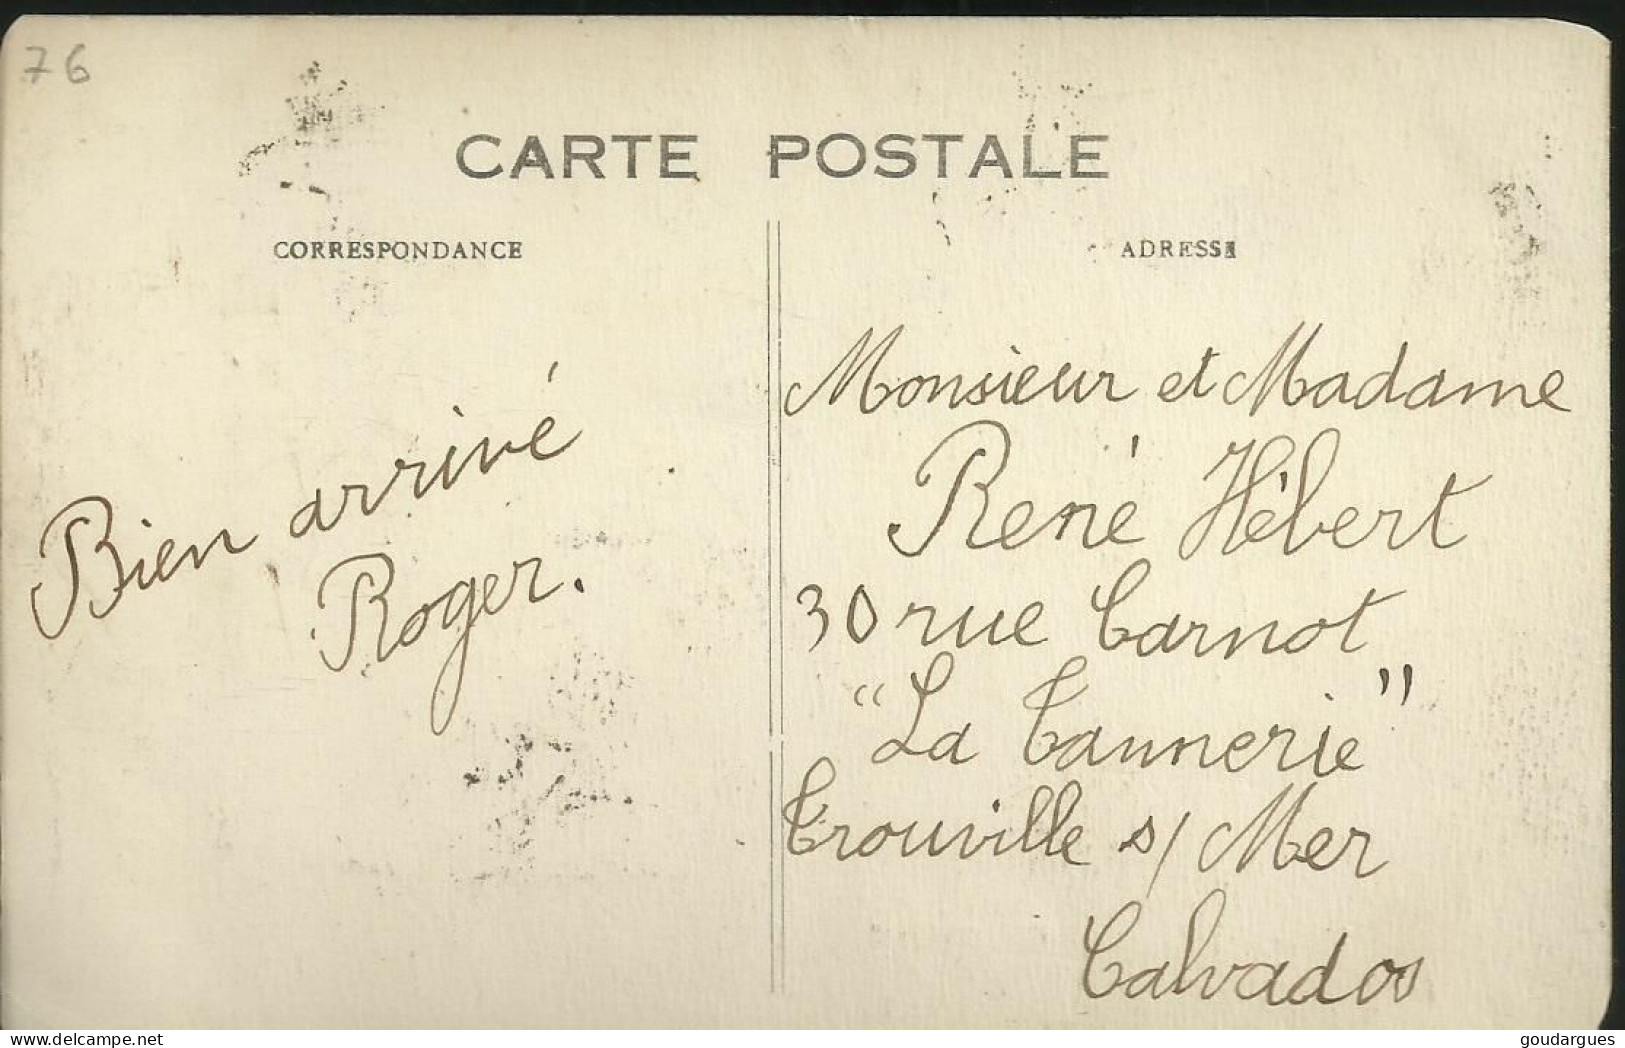 76
CARTE POSTALE
CORRESPONDANCE
ADRESSE
Bien arrivé
Roger.
Monsieur et Madame
René Hébert
30 rue Carnot
"La Tannerie"
Trouville s/ Mer
Calvados
delcampe.net
goudargues